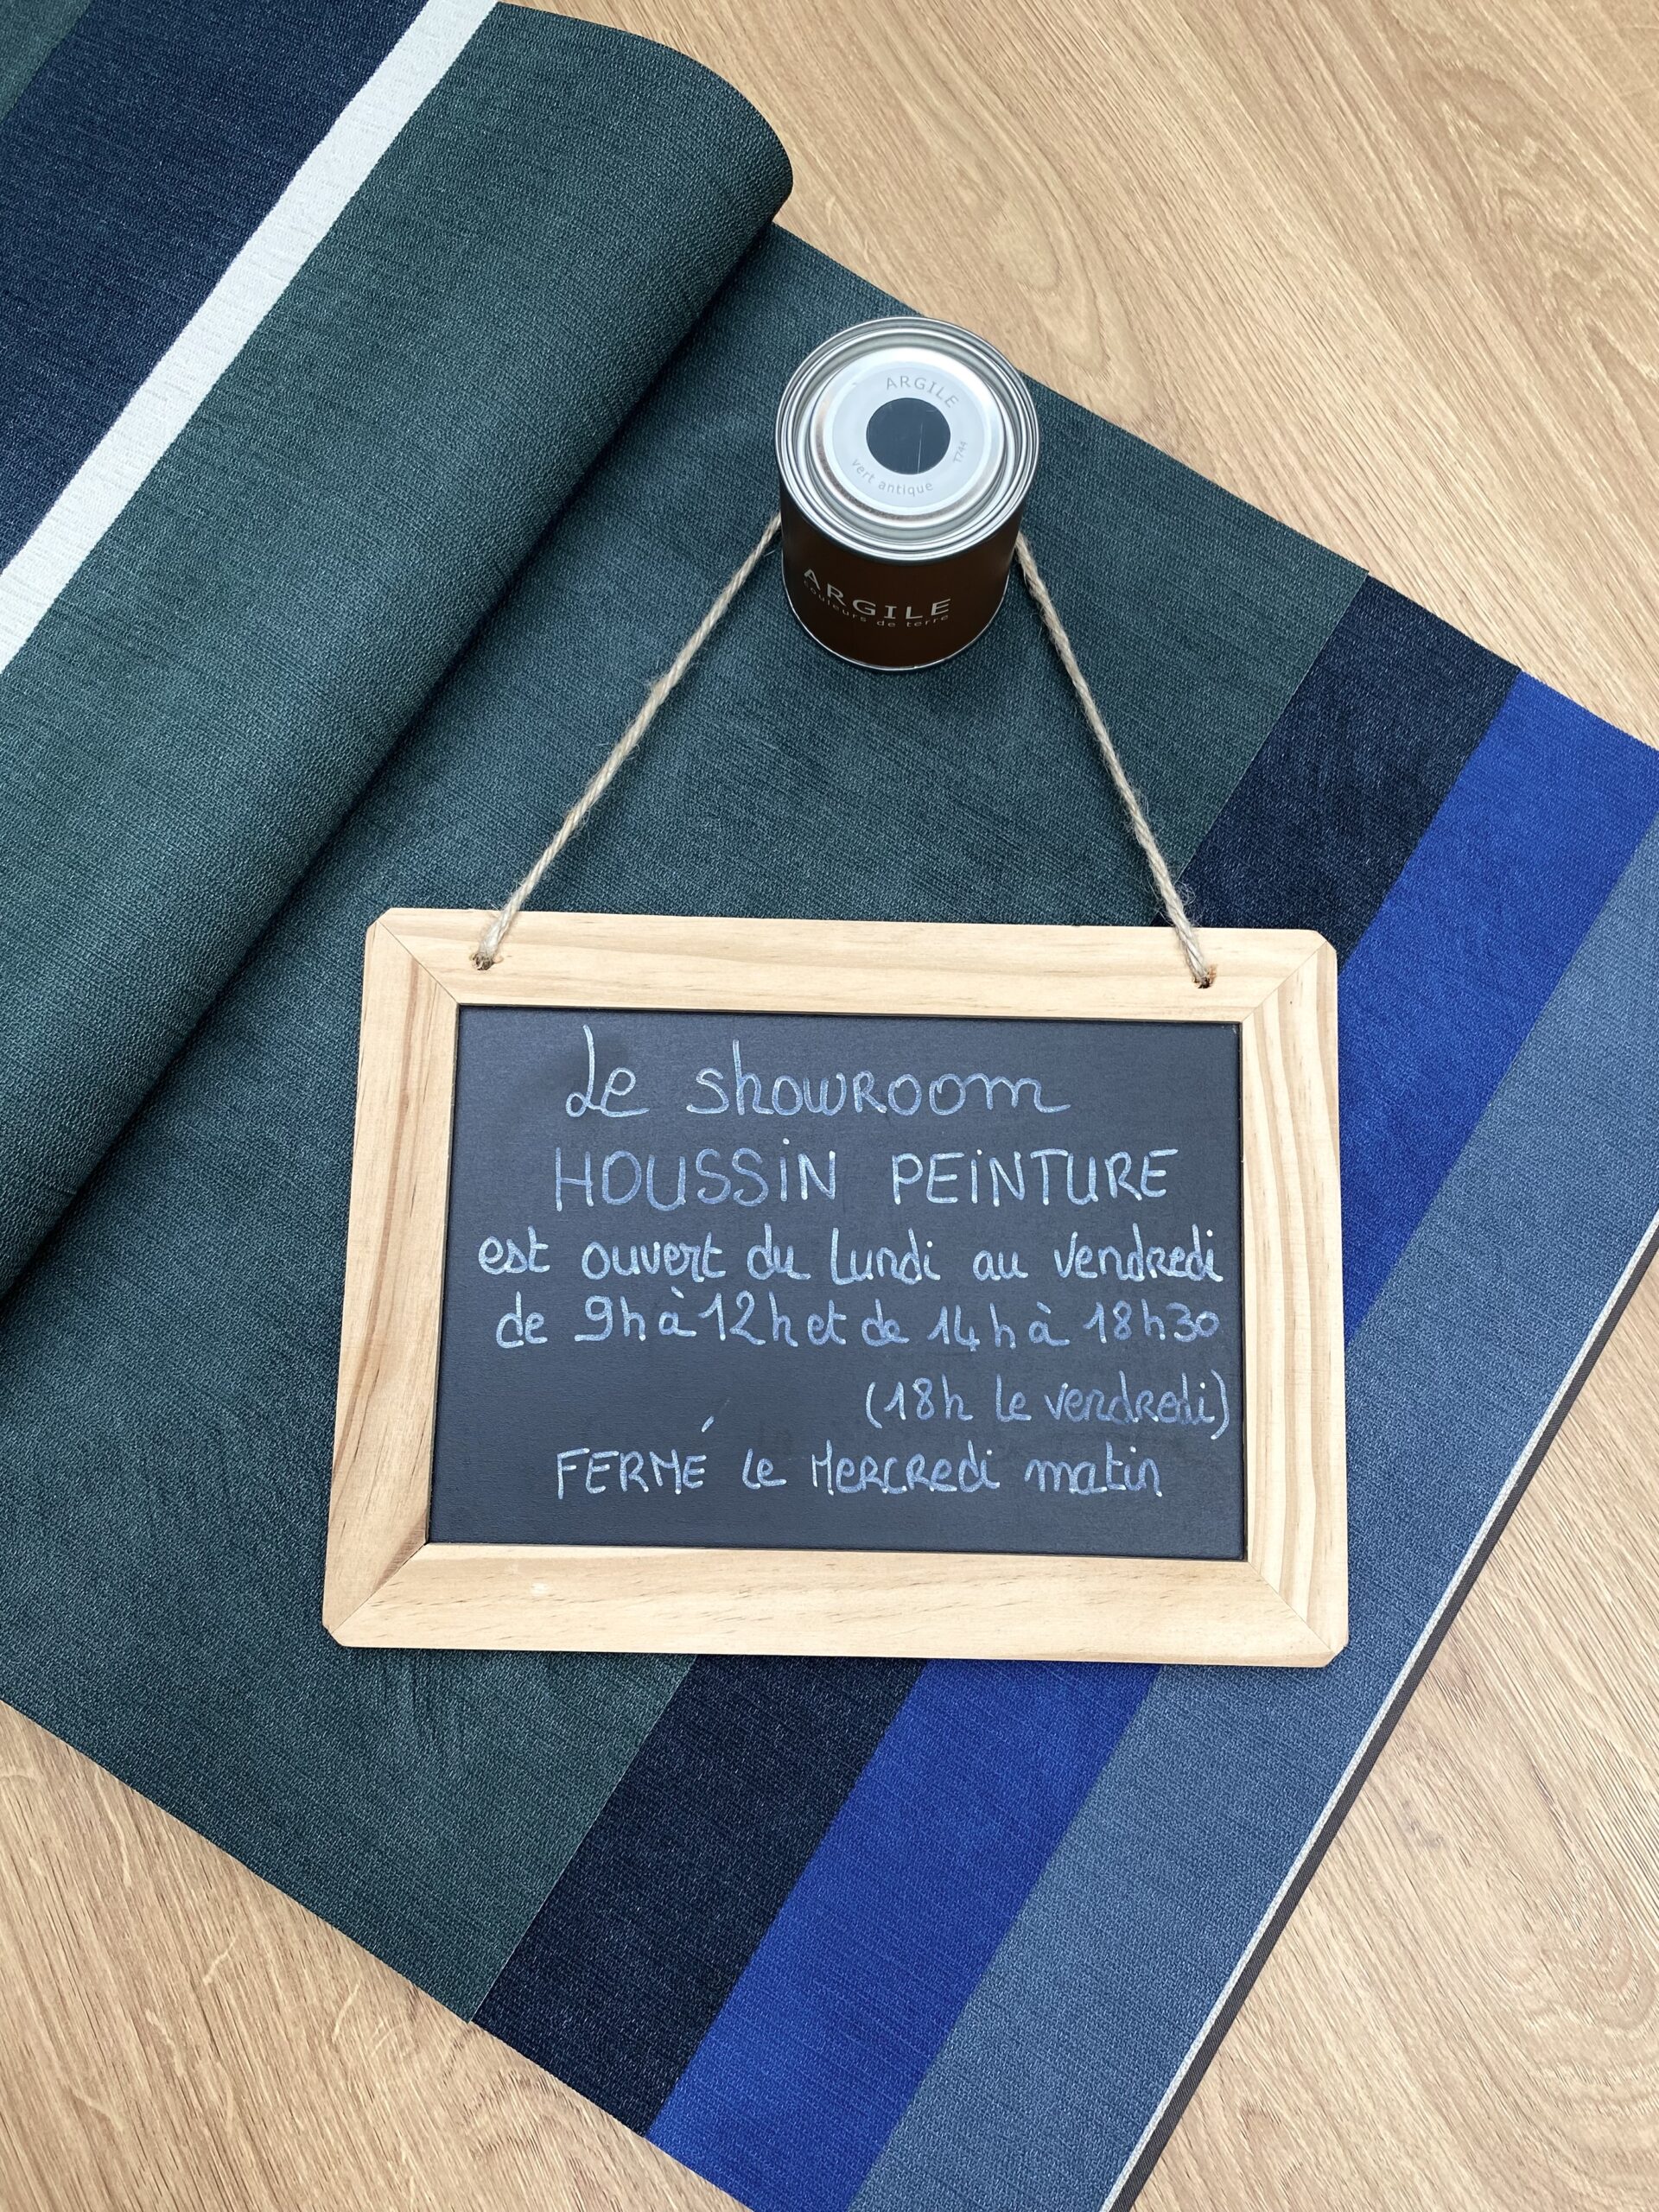 ARGILE
T744
vert antique
ARGILE
couleurs de terre
Le showroom
HOUSSiN PEiNTURE
est ouvert du Lundi au vendredi
de 9h à 12h et de 14h à 18h30
(18h le vendredi)
FERMÉ le Mercredi matin